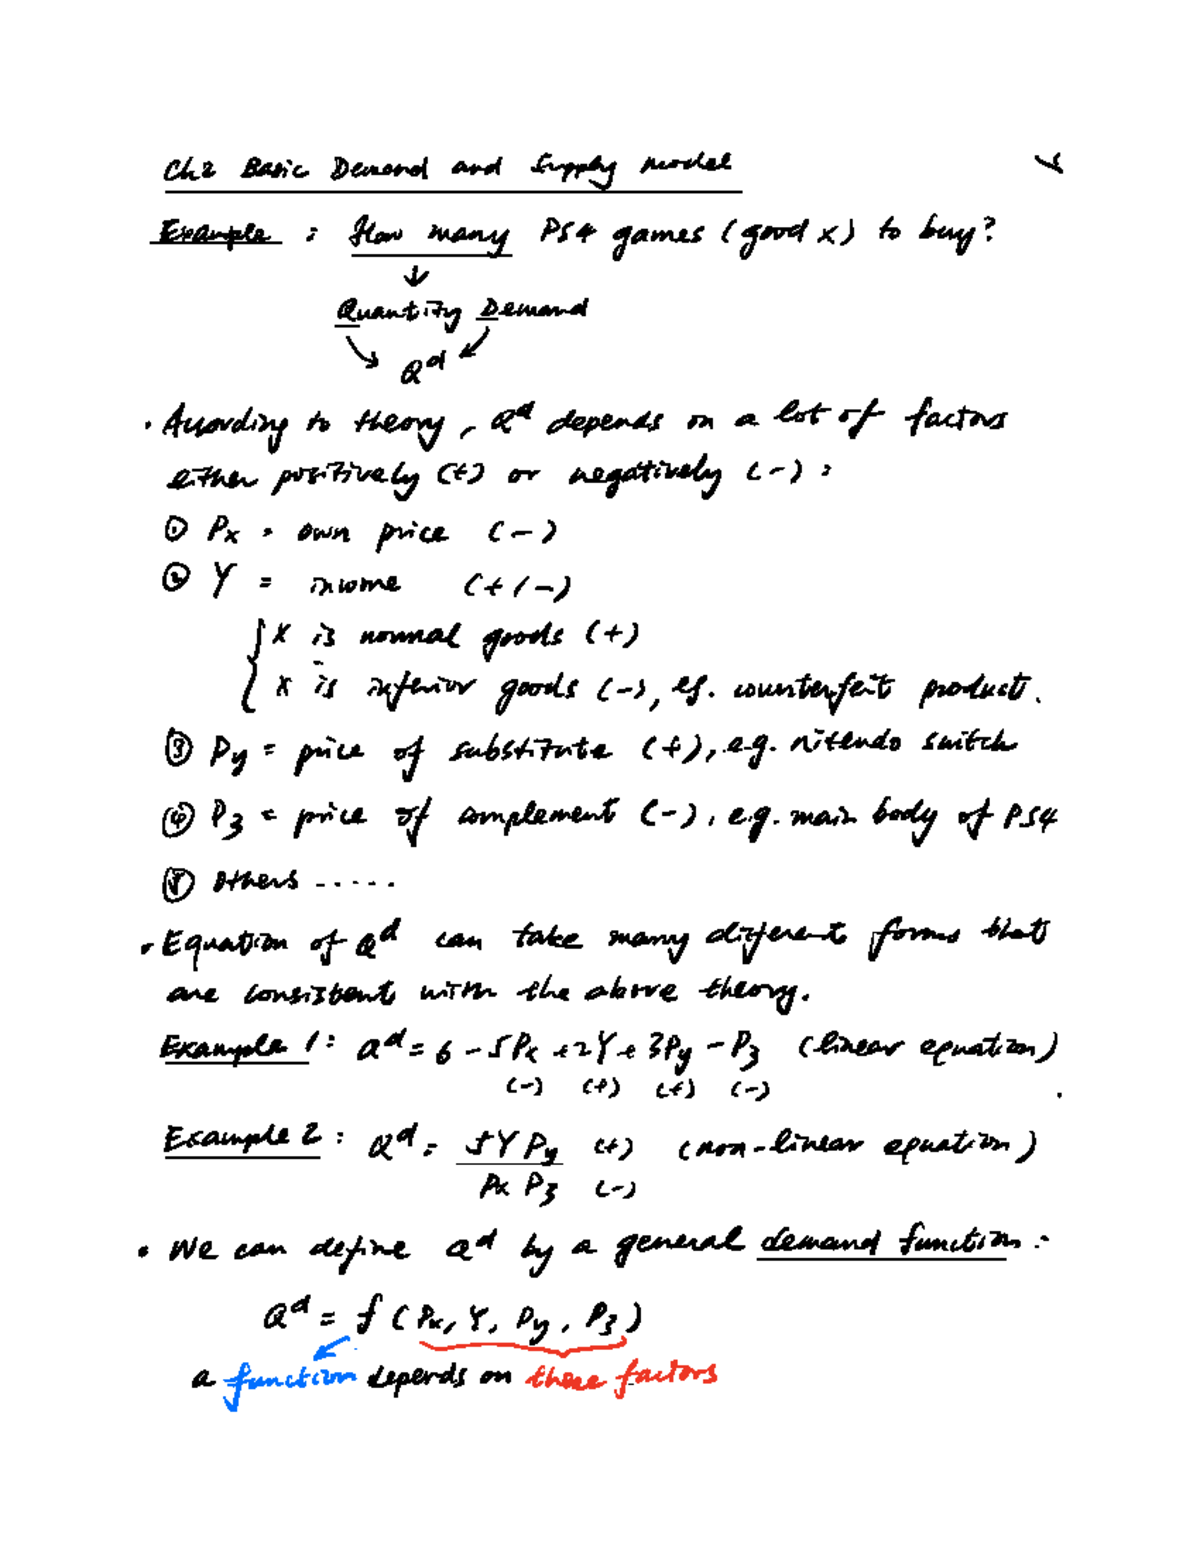 Ch2 Basic Demand and Supply model
Example : How many PS4 games (good x) to buy?
↓
Quantity Demand
Q^d
· According to theory, Q^d depends on a lot of factors
either positively (+) or negatively (-) :
① Px = own price (-)
② Y = income (+/-)
{ x is normal goods (+)
x is inferior goods (-), eg. counterfeit product.
③ Py = price of substitute (+), e.g. nitendo switch
④ Pz = price of complement (-), e.g. main body of PS4
⑤ others .....
· Equation of Q^d can take many different forms that
are consistent with the above theory.
Example 1: Q^d = 6 - 5Px + 2Y + 3Py - Pz (linear equation)
(-) (+) (+) (-)
Example 2 : Q^d = 5YPy (+) (non-linear equation)
Px Pz (-)
· We can define Q^d by a general demand function :-
Q^d = f (Px, Y, Py, Pz)
a function depends on these factors